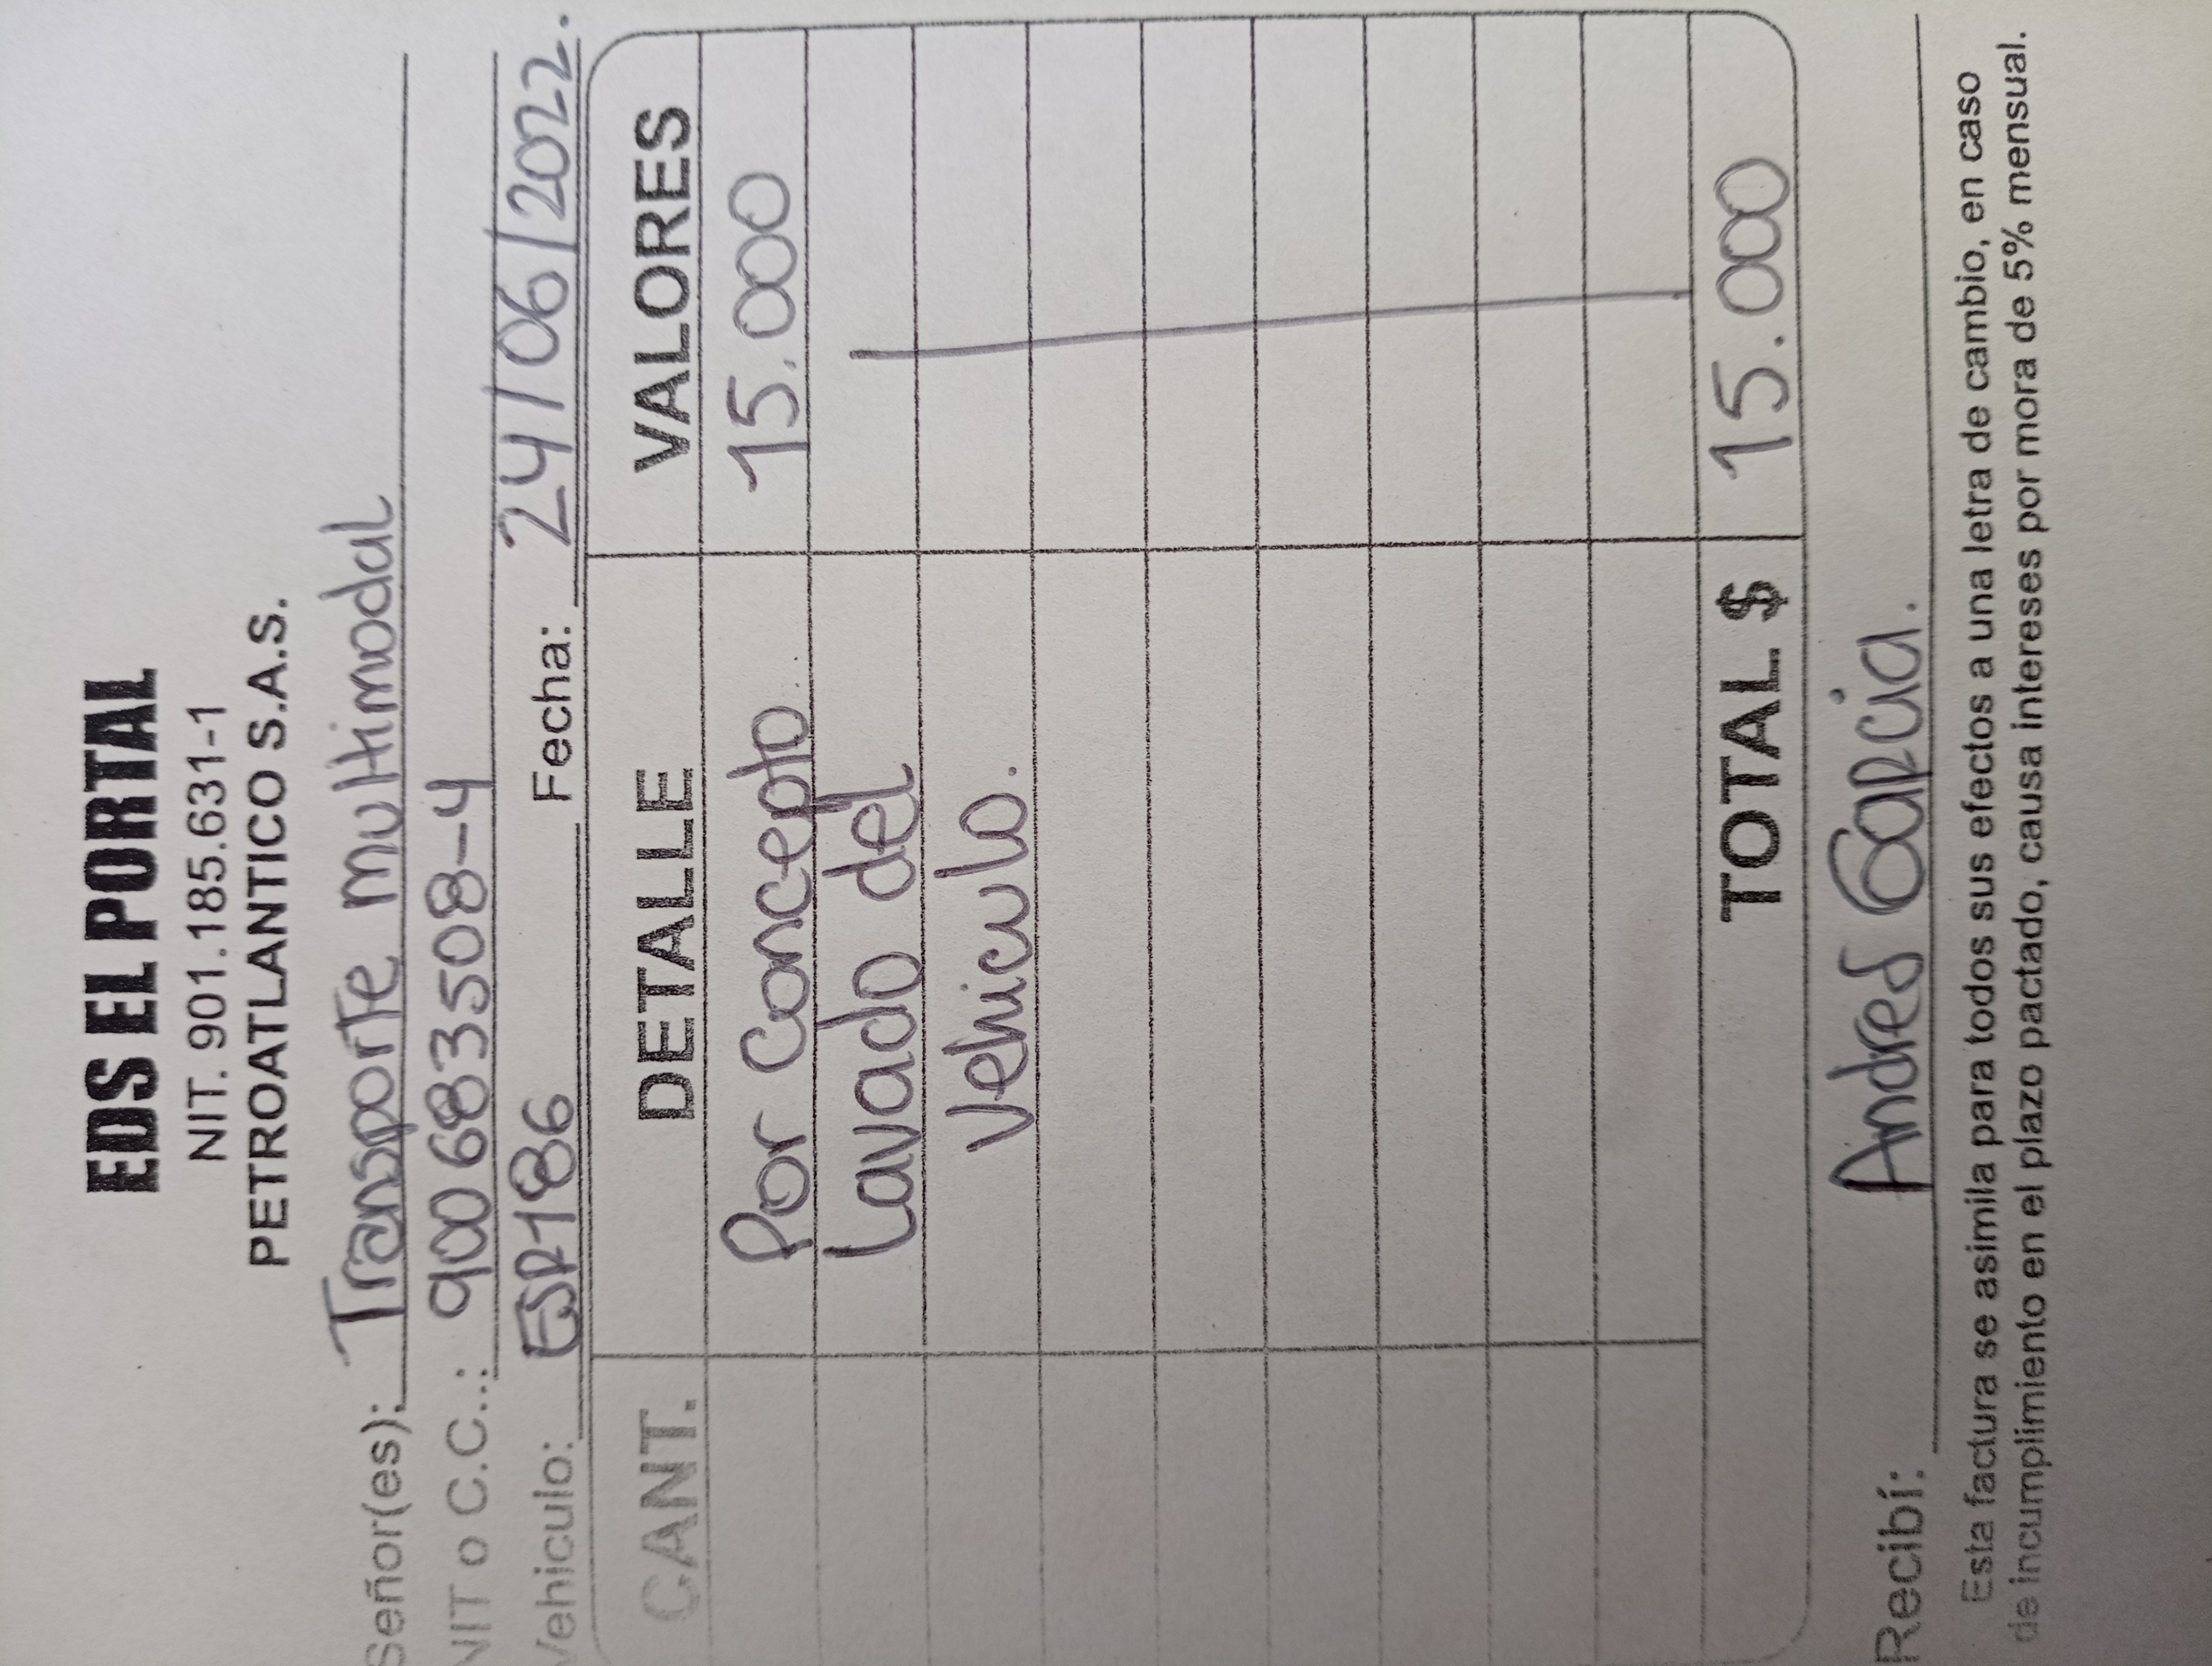 EDS EL PORTAL
NIT. 901.185.631-1
PETROATLANTICO S.A.S.
Señor(es): Transporte multimodal
NIT o C.C.: 900683508-4
Vehiculo: ESR186 Fecha: 24/06/2022.
CANT. DETALLE VALORES
Por Concepto 15.000
Lavado del
vehiculo.
TOTAL $ 15.000
Recibí: Andres Garcia.
Esta factura se asimila para todos sus efectos a una letra de cambio, en caso
de incumplimiento en el plazo pactado, causa intereses por mora de 5% mensual.